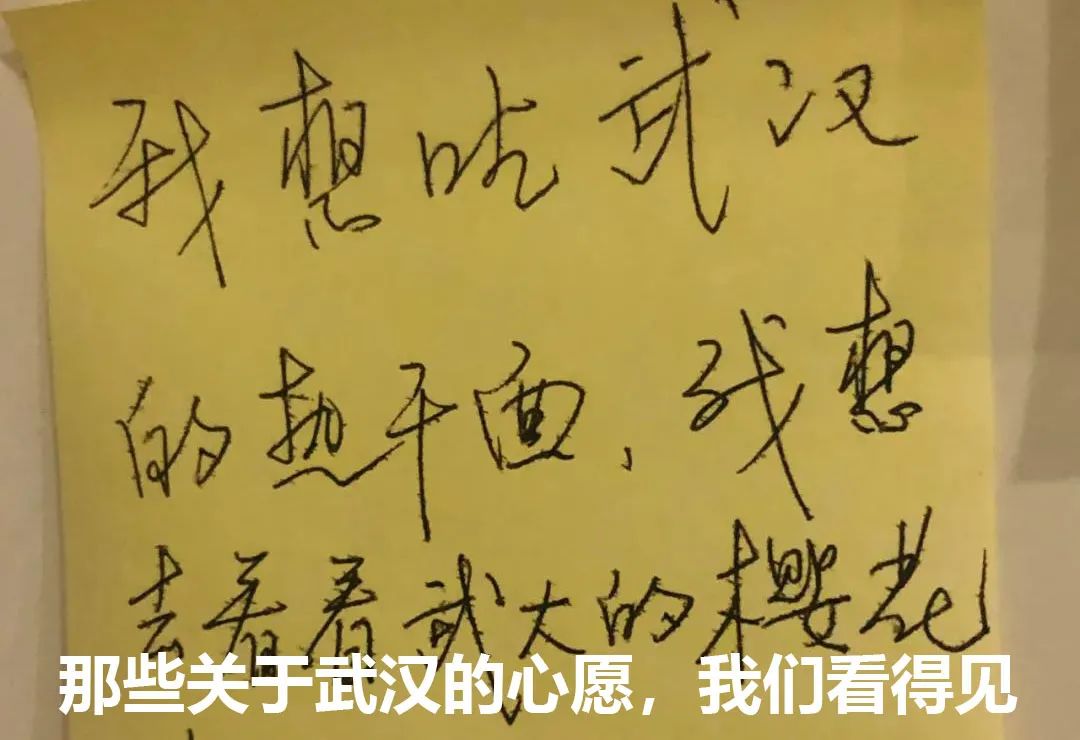 我想吃武汉
的热干面,我想
去看看武大的樱花
那些关于武汉的心愿，我们看得见